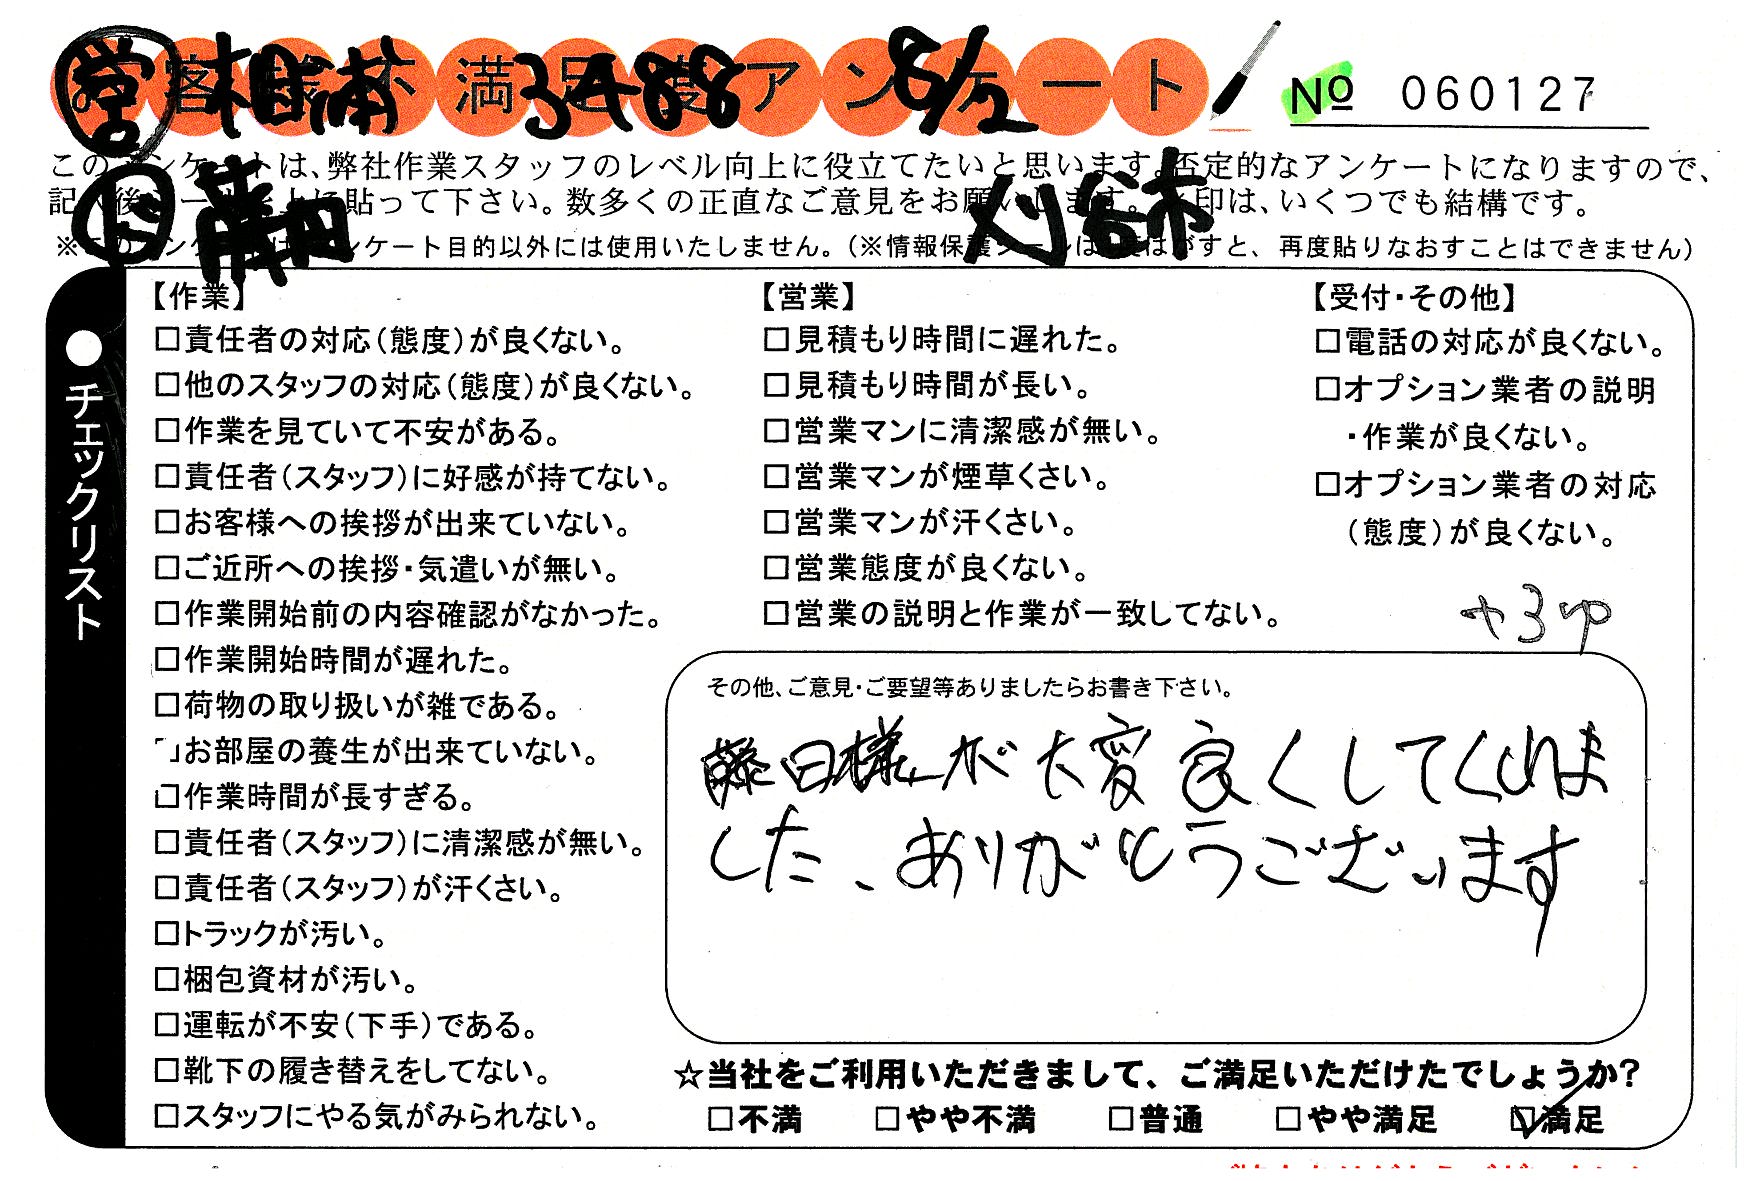 お客様不満足度アンケート
営 相浦 3488 8/2
№ 060127
このアンケートは、弊社作業スタッフのレベル向上に役立てたいと思います。否定的なアンケートになりますので、
記入後シールを上に貼って下さい。数多くの正直なご意見をお願いします。 印は、いくつでも結構です。
藤田 刈谷市
※このアンケートはアンケート目的以外には使用いたしません。（※情報保護シールは1度はがすと、再度貼りなおすことはできません）
●チェックリスト
【作業】
□責任者の対応（態度）が良くない。
□他のスタッフの対応（態度）が良くない。
□作業を見ていて不安がある。
□責任者（スタッフ）に好感が持てない。
□お客様への挨拶が出来ていない。
□ご近所への挨拶・気遣いが無い。
□作業開始前の内容確認がなかった。
□作業開始時間が遅れた。
□荷物の取り扱いが雑である。
□お部屋の養生が出来ていない。
□作業時間が長すぎる。
□責任者（スタッフ）に清潔感が無い。
□責任者（スタッフ）が汗くさい。
□トラックが汚い。
□梱包資材が汚い。
□運転が不安（下手）である。
□靴下の履き替えをしてない。
□スタッフにやる気がみられない。
【営業】
□見積もり時間に遅れた。
□見積もり時間が長い。
□営業マンに清潔感が無い。
□営業マンが煙草くさい。
□営業マンが汗くさい。
□営業態度が良くない。
□営業の説明と作業が一致してない。
【受付・その他】
□電話の対応が良くない。
□オプション業者の説明
・作業が良くない。
□オプション業者の対応
（態度）が良くない。
+3up
その他、ご意見・ご要望等ありましたらお書き下さい。
藤田様が大変良くしてくれま
した、ありがとうございます
☆当社をご利用いただきまして、ご満足いただけたでしょうか？
□不満 □やや不満 □普通 □やや満足 ☑満足